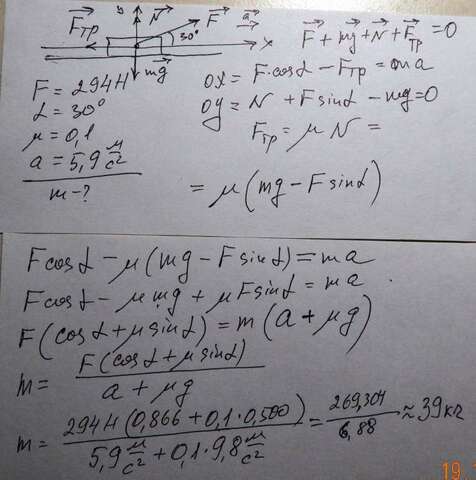 y N F a
Fтр 30° x
mg
F + mg + N + Fтр = 0
F = 294Н
OX = F·cosα - Fтр = ma
α = 30°
OY = N + F sinα - mg = 0
μ = 0,1
Fтр = μN =
a = 5,9 м/с²
m - ?
= μ(mg - F sinα)
F cosα - μ(mg - F sinα) = ma
F cosα - μmg + μF sinα = ma
F(cosα + μ sinα) = m(a + μg)
m = F(cosα + μ sinα) / a + μg
m = 294Н(0,866 + 0,1·0,500) / 5,9 м/с² + 0,1·9,8 м/с² = 269,304 / 6,88 ≈ 39 кг
19.